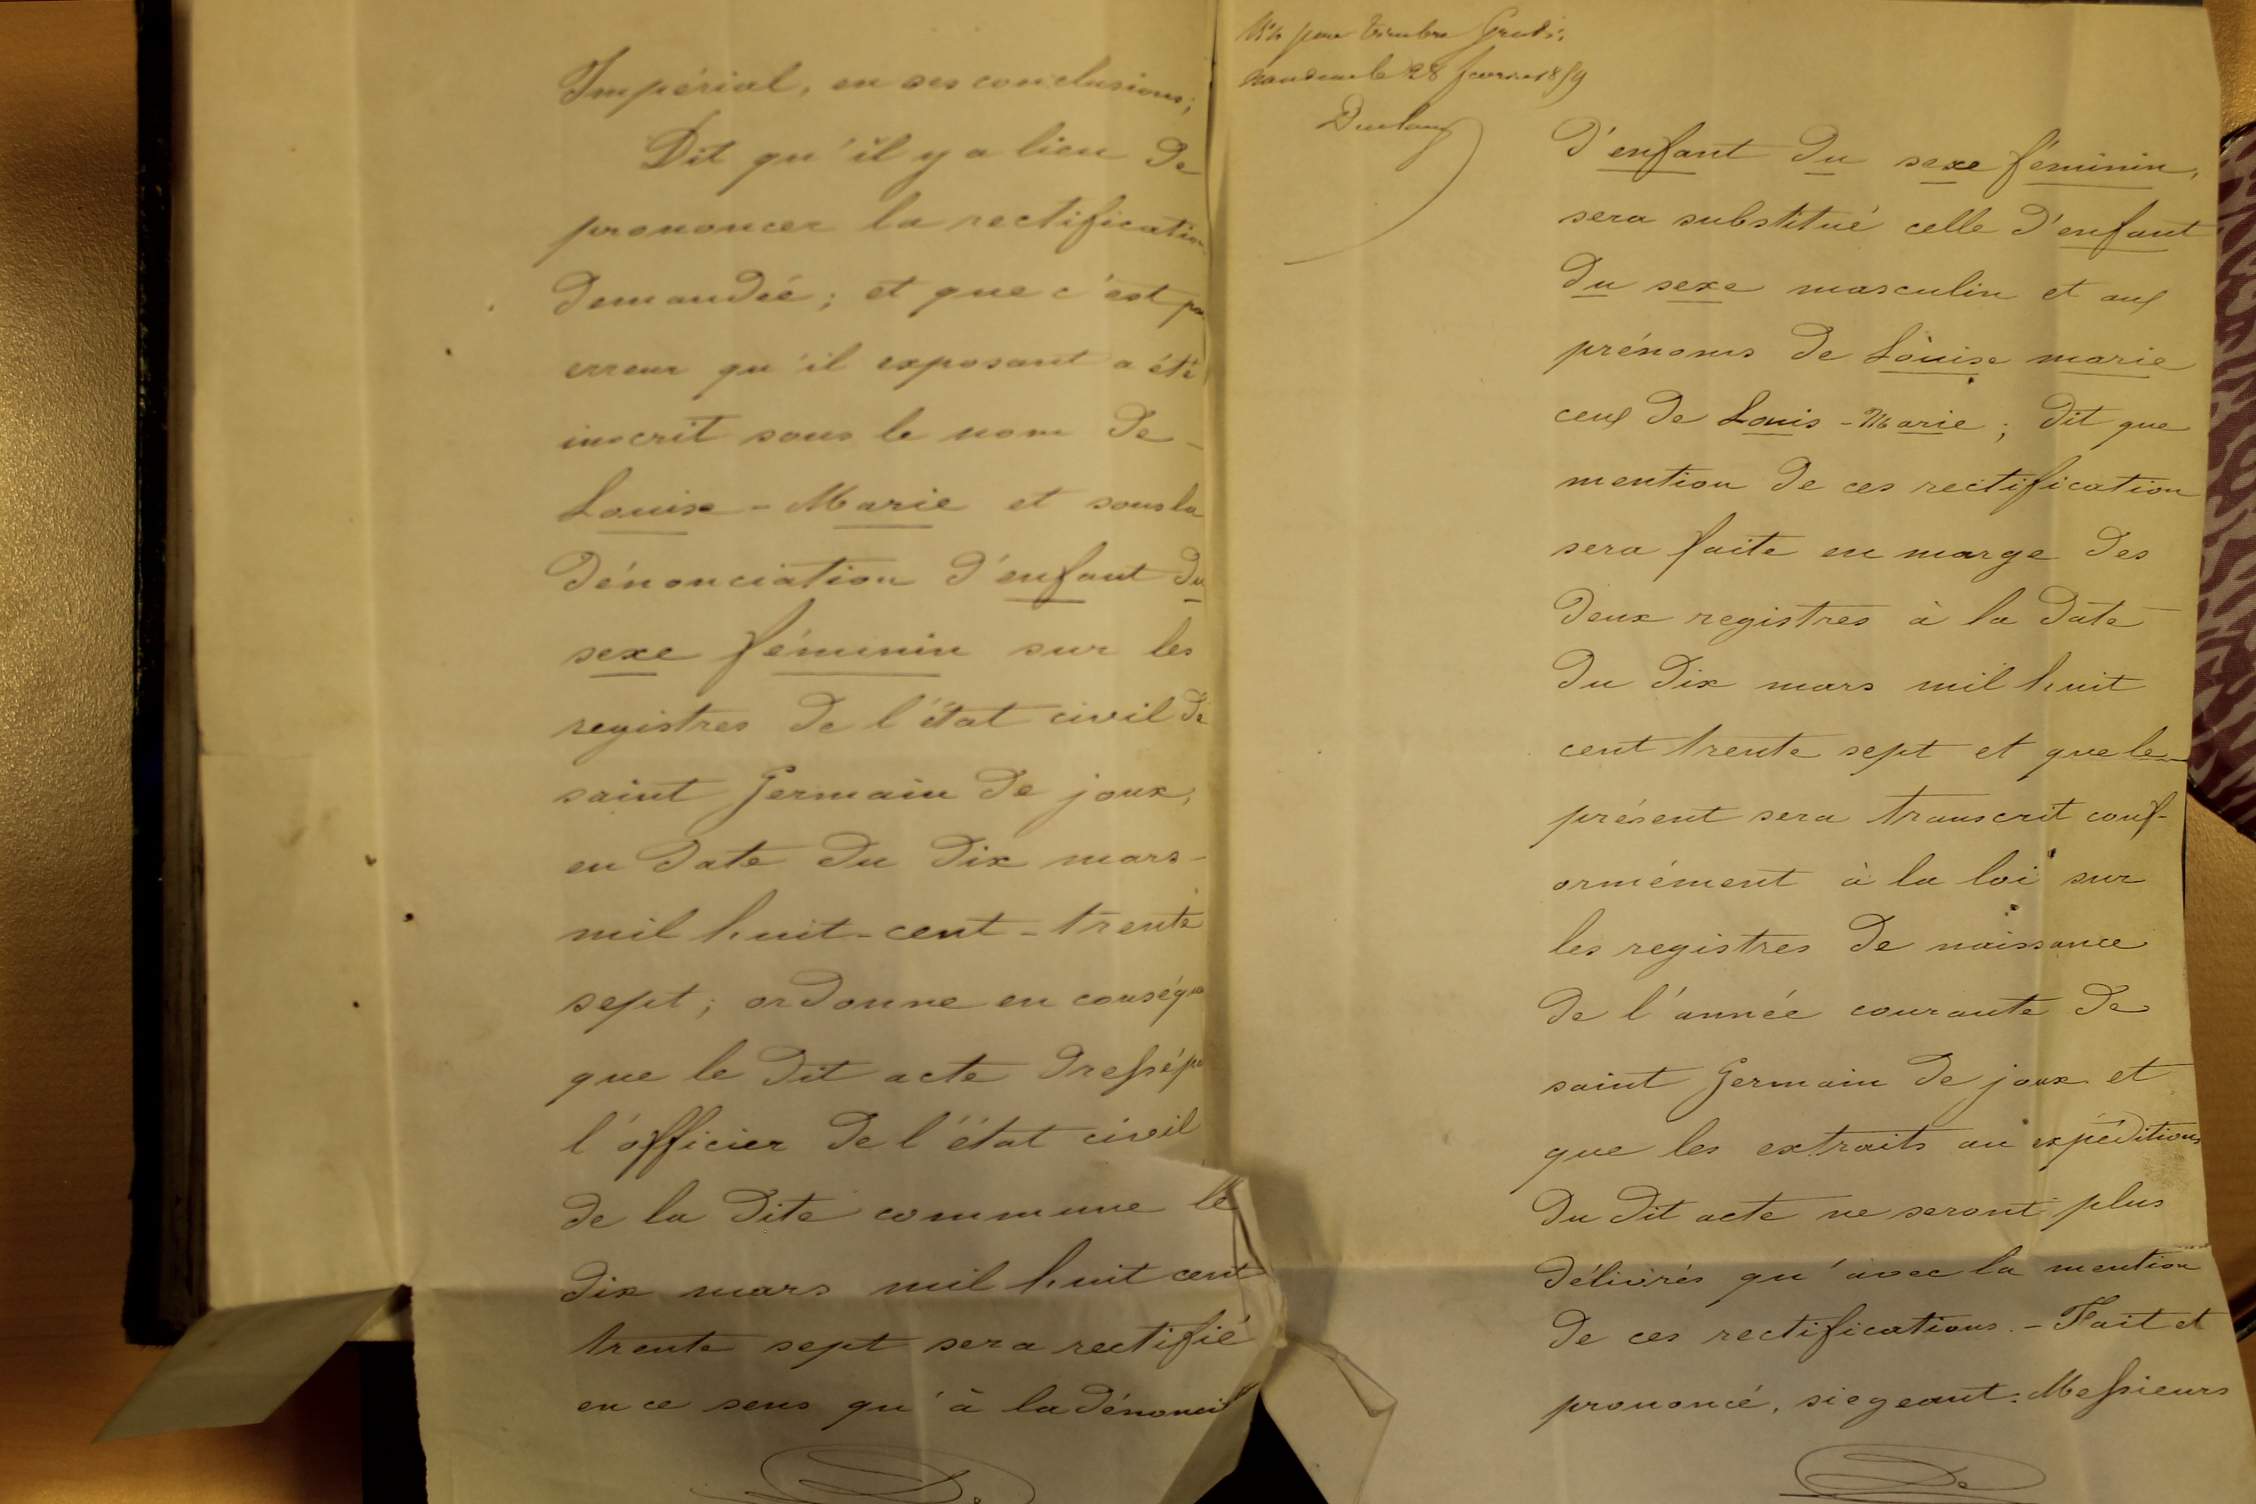 Impérial, en ses conclusions;
Dit qu'il y a lieu de
prononcer la rectification
demandée; et que c'est par
erreur qu'il exposant a été
inscrit sous le nom de -
Louise - Marie et sous la
dénonciation d'enfant du
sexe féminin sur les
registres de l'état civil de
saint Germain de joux,
en date du dix mars -
mil huit - cent - trente
sept; ordonne en conséq
que le dit acte dressé p
l'officier de l'état civil
de la dite commune le
dix mars mil huit cent
trente sept sera rectifié
en ce sens qu'à la dénonciat
pour timbre Gratis.
le 28 fevrier 1859
d'enfant du sexe féminin,
sera substitué celle d'enfant
du sexe masculin et aux
prénoms de Louise marie
ceux de Louis - Marie; dit que
mention de ces rectification
sera faite en marge des
deux registres à la date
du dix mars mil huit
cent trente sept et que le
présent sera transcrit conf-
ormément à la loi sur
les registres de naissance
de l'année courante de
saint Germain de joux et
que les extraits au expéditions
du dit acte ne seront plus
délivrés qu'avec la mention
de ces rectifications. - Fait et
prononcé, siegeant: Messieurs